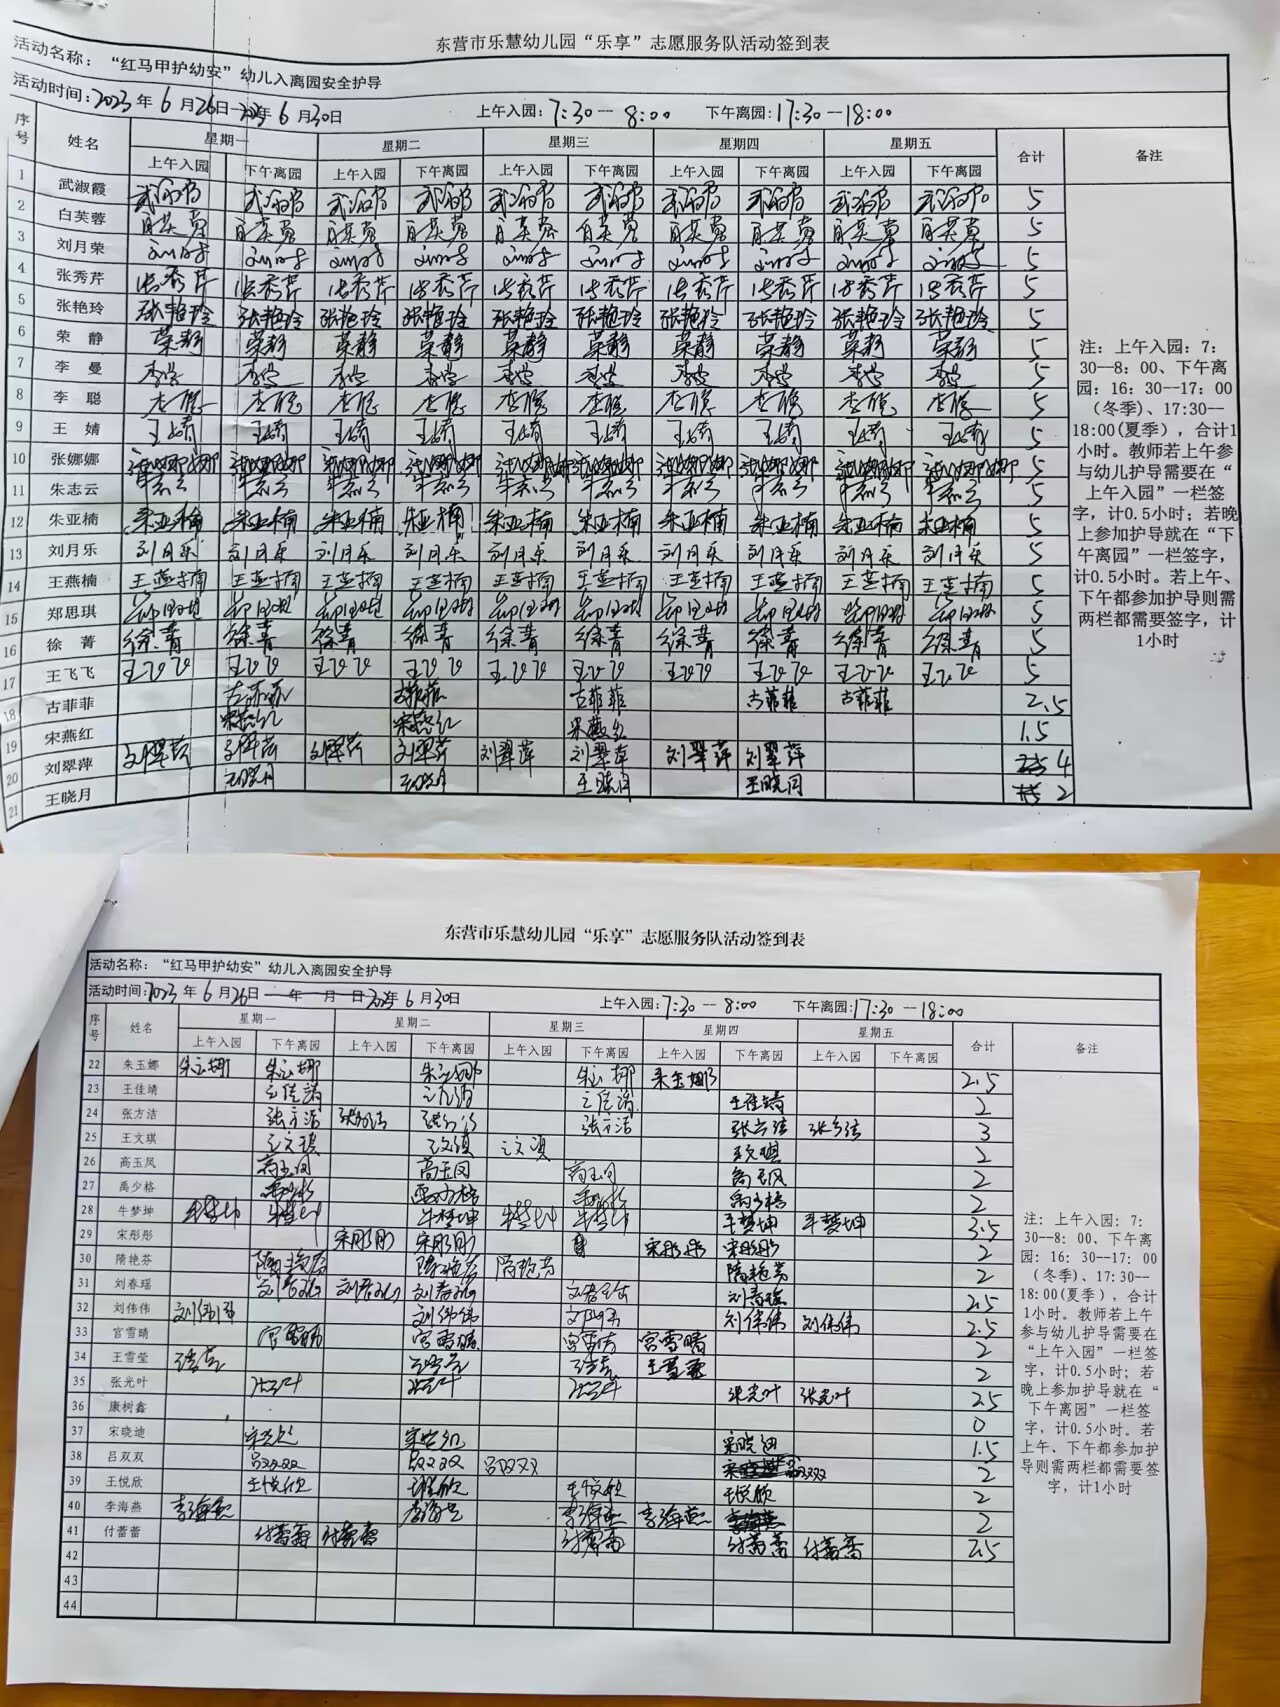 东营市乐慧幼儿园“乐享”志愿服务队活动签到表
活动名称：“红马甲护幼安”幼儿入离园安全护导
活动时间：2023年6月26日-2023年6月30日 上午入园：7:30--8:00 下午离园：17:30--18:00
序号 姓名 星期一 星期二 星期三 星期四 星期五 合计 备注
上午入园 下午离园 上午入园 下午离园 上午入园 下午离园 上午入园 下午离园 上午入园 下午离园
1 武淑霞 5
2 白芙蓉 5
3 刘月荣 5
4 张秀芹 张秀芹 张秀芹 张秀芹 张秀芹 张秀芹 张秀芹 张秀芹 张秀芹 张秀芹 张秀芹 5
5 张艳玲 张艳玲 张艳玲 张艳玲 张艳玲 张艳玲 张艳玲 张艳玲 张艳玲 张艳玲 张艳玲 5
6 荣静 荣静 荣静 荣静 荣静 荣静 荣静 荣静 荣静 荣静 荣静 5
7 李曼 5
8 李聪 李聪 李聪 李聪 李聪 李聪 李聪 李聪 李聪 李聪 李聪 5
9 王婧 王婧 王婧 王婧 王婧 王婧 王婧 王婧 王婧 王婧 王婧 5
10 张娜娜 张娜娜 张娜娜 张娜娜 张娜娜 张娜娜 张娜娜 张娜娜 张娜娜 张娜娜 张娜娜 5
11 朱志云 5
12 朱亚楠 朱亚楠 朱亚楠 朱亚楠 朱亚楠 朱亚楠 朱亚楠 朱亚楠 朱亚楠 朱亚楠 朱亚楠 5
13 刘月乐 刘月乐 刘月乐 刘月乐 刘月乐 刘月乐 刘月乐 刘月乐 刘月乐 刘月乐 刘月乐 5
14 王燕楠 王燕楠 王燕楠 王燕楠 王燕楠 王燕楠 王燕楠 王燕楠 王燕楠 王燕楠 王燕楠 5
15 郑思琪 5
16 徐菁 徐菁 徐菁 徐菁 徐菁 徐菁 徐菁 徐菁 徐菁 徐菁 徐菁 5
17 王飞飞 王飞飞 王飞飞 王飞飞 王飞飞 王飞飞 王飞飞 王飞飞 王飞飞 王飞飞 王飞飞 5
18 古菲菲 古菲菲 古菲菲 古菲菲 古菲菲 古菲菲 2.5
19 宋燕红 宋燕红 宋燕红 宋燕红 1.5
20 刘翠萍 刘翠萍 刘翠萍 刘翠萍 刘翠萍 刘翠萍 刘翠萍 刘翠萍 刘翠萍 4
21 王晓月 王晓月 王晓月 王晓月 王晓月 2
注：上午入园：7：
30--8：00、下午离
园：16：30--17：00
（冬季）、17:30--
18:00(夏季），合计1
小时。教师若上午参
与幼儿护导需要在“
上午入园”一栏签
字，计0.5小时；若晚
上参加护导就在“下
午离园”一栏签字，
计0.5小时。若上午、
下午都参加护导则需
两栏都需要签字，计
1小时
东营市乐慧幼儿园“乐享”志愿服务队活动签到表
活动名称：“红马甲护幼安”幼儿入离园安全护导
活动时间：2023年6月26日--年 月 日2023年6月30日 上午入园：7:30--8:00 下午离园：17:30--18:00
序号 姓名 星期一 星期二 星期三 星期四 星期五 合计 备注
上午入园 下午离园 上午入园 下午离园 上午入园 下午离园 上午入园 下午离园 上午入园 下午离园
22 朱玉娜 朱玉娜 朱玉娜 朱玉娜 朱玉娜 朱玉娜 2.5
23 王佳靖 王佳靖 王佳靖 王佳靖 王佳靖 2
24 张方洁 张方洁 张方洁 张方洁 张方洁 张方洁 张方洁 3
25 王文琪 王文琪 王文琪 王文琪 王文琪 2
26 高玉凤 高玉凤 高玉凤 高玉凤 高玉凤 2
27 禹少格 禹少格 禹少格 禹少格 禹少格 2
28 牛梦坤 牛梦坤 牛梦坤 牛梦坤 牛梦坤 牛梦坤 牛梦坤 牛梦坤 3.5
29 宋彤彤 宋彤彤 宋彤彤 宋彤彤 宋彤彤 2
30 隋艳芬 隋艳芬 隋艳芬 隋艳芬 隋艳芬 2
31 刘春瑶 刘春瑶 刘春瑶 刘春瑶 刘春瑶 刘春瑶 2.5
32 刘伟伟 刘伟伟 刘伟伟 刘伟伟 刘伟伟 刘伟伟 2.5
33 宫雪晴 宫雪晴 宫雪晴 宫雪晴 宫雪晴 2
34 王雪莹 2
35 张光叶 张光叶 张光叶 张光叶 张光叶 张光叶 2.5
36 康树鑫 0
37 宋晓迪 宋晓迪 1.5
38 吕双双 吕双双 吕双双 吕双双 吕双双 2
39 王悦欣 王悦欣 王悦欣 王悦欣 王悦欣 2
40 李海燕 李海燕 李海燕 李海燕 李海燕 2
41 付蕾蕾 付蕾蕾 付蕾蕾 付蕾蕾 付蕾蕾 付蕾蕾 2.5
42
43
44
注：上午入园：7：
30--8：00、下午离
园：16：30--17：00
（冬季）、17:30--
18:00(夏季），合计
1小时。教师若上午
参与幼儿护导需要在
“上午入园”一栏签
字，计0.5小时；若
晚上参加护导就在“
下午离园”一栏签
字，计0.5小时。若
上午、下午都参加护
导则需两栏都需要签
字，计1小时